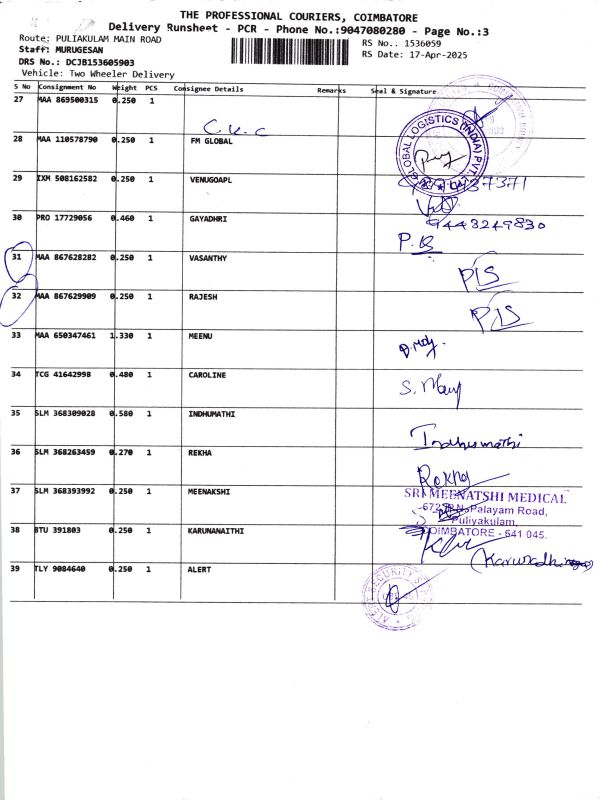 THE PROFESSIONAL COURIERS, COIMBATORE
Delivery Runsheet - PCR - Phone No.:9047080280 - Page No.:3
Route: PULIAKULAM MAIN ROAD
RS No.: 1536059
Staff: MURUGESAN
RS Date: 17-Apr-2025
DRS No.: DCJB153605903
Vehicle: Two Wheeler Delivery
S No Consignment No Weight PCS Consignee Details Remarks Seal & Signature
27 MAA 869500315 0.250 1
C.K.C
28 MAA 110578790 0.250 1 FM GLOBAL
GLOBAL LOGISTICS (INDIA) PVT.
29 IXM 508162582 0.250 1 VENUGOAPL
30 PRO 17729056 0.460 1 GAYADHRI
9443249830
31 MAA 867628282 0.250 1 VASANTHY
P/S
32 MAA 867629909 0.250 1 RAJESH
P/S
33 MAA 650347461 1.330 1 MEENU
34 TCG 41642998 0.480 1 CAROLINE
S. Mary
35 SLM 368309028 0.580 1 INDHUMATHI
Indhumathi
36 SLM 368263459 0.270 1 REKHA
Rekha
37 SLM 368393992 0.250 1 MEENAKSHI
SRI MEENATSHI MEDICAL
Palayam Road,
Puliyakulam,
COIMBATORE - 641 045.
38 BTU 391803 0.250 1 KARUNANAITHI
39 TLY 9084640 0.250 1 ALERT
ALERT SECURITY